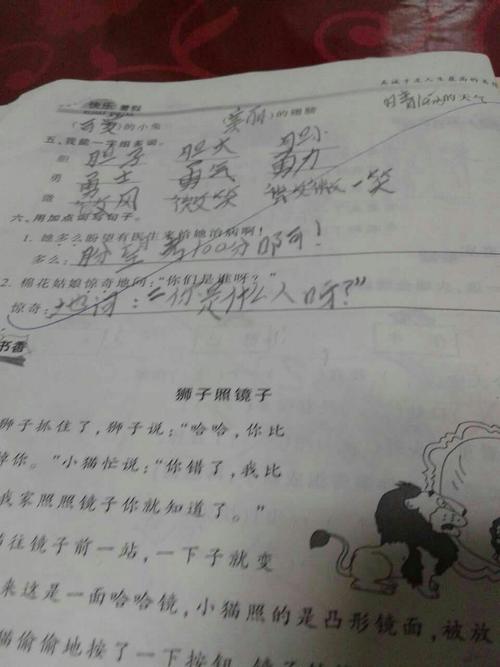 快乐暑假
(可爱)的小兔 (美丽)的翅膀 的天气
五、我能一字组多词。
胆 胆子 胆大 胆小
勇 勇士 勇气 勇力
微 微风 微笑 微微一笑
六、用加点词写句子。
1. 她多么盼望有医生来给她治病啊!
多么: 盼望考100分啊!
2. 棉花姑娘惊奇地问:“你们是谁呀?”
惊奇: 地问:“你是什么人呀?”
书香
狮子照镜子
狮子抓住了,狮子说:“哈哈,你比
你。”小猫忙说:“你错了,我比
我家照照镜子你就知道了。”
往镜子前一站,一下子就变
来这是一面哈哈镜,小猫照的是凸形镜面,被放
猫偷偷地按了一下按钮,镜子